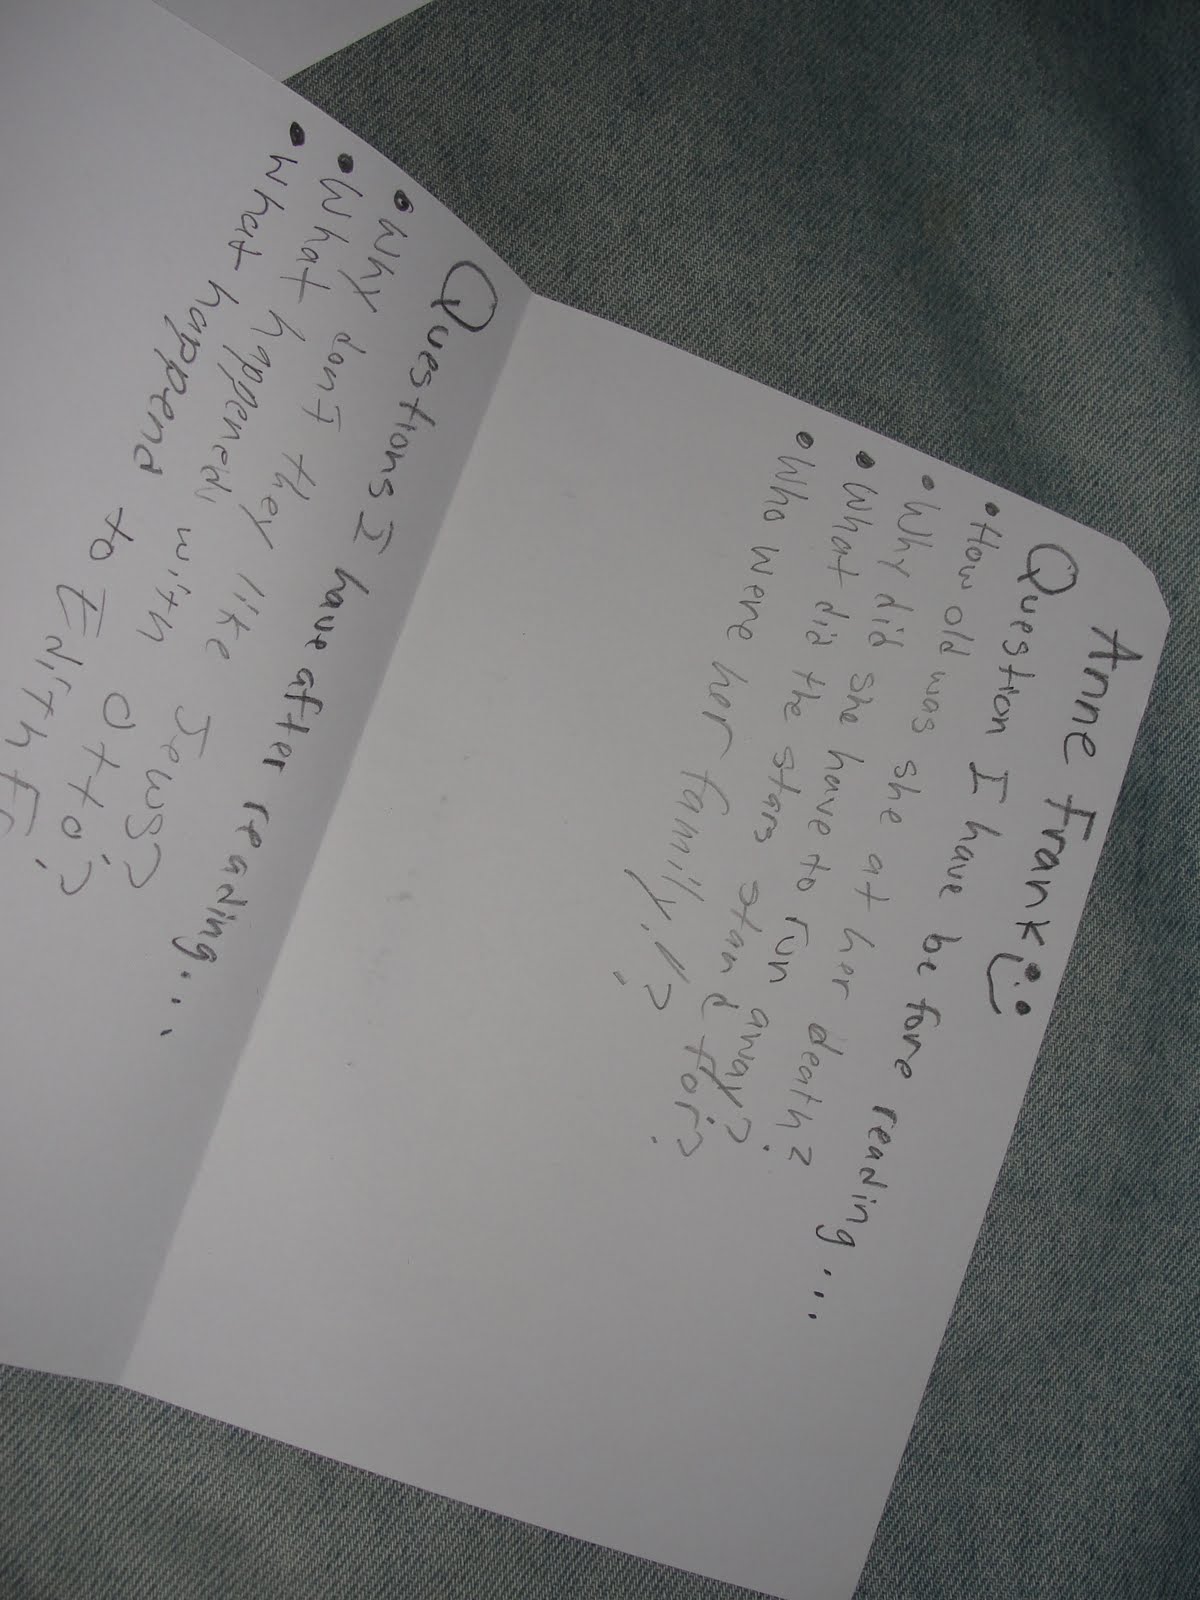 Anne Frank
Question I have before reading...
• How old was she at her death?
• Why did she have to run away?
• What did the stars stand for?
• Who were her family!?
Questions I have after reading...
• Why don't they like Jews?
• What happened with Otto?
• What happend to Edith